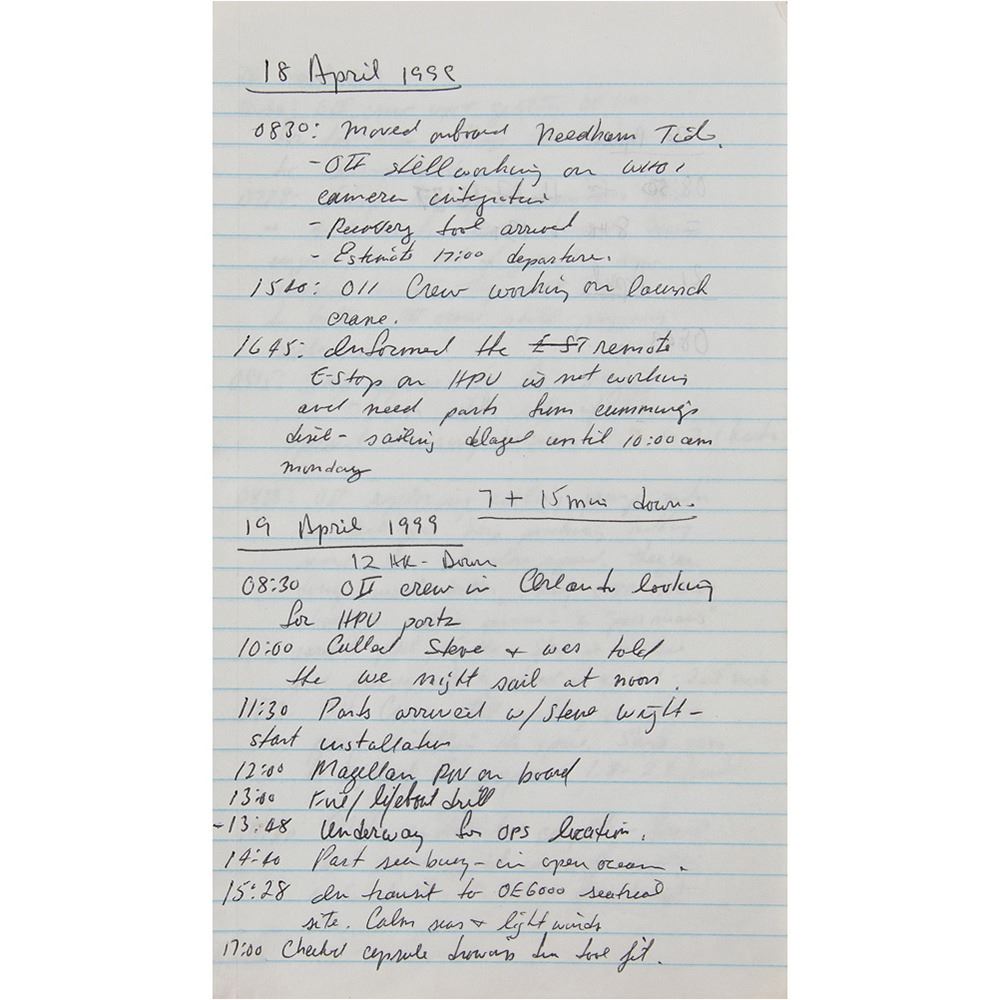 18 April 1999
0830: Moved onboard Needham Tide.
- OII still working on WHOI
camera integration
- Recovery tool arrived
- Estimate 17:00 departure.
1540: OII Crew working on launch
crane.
1645: Informed the E-ST remote
E-Stop on HPU is not working
and need parts from cummings
- sailing delayed until 10:00 am
monday
7 + 15 min down.
19 April 1999
12 HR - Down
08:30 OII crew in Orlando looking
for HPU parts
10:00 Called Steve + was told
the we might sail at noon.
11:30 Parts arrived w/ Steve Wright -
start installation
12:00 Magellan ROV on board
13:00 Fire/lifeboat drill
- 13:48 Underway for OPS location.
14:40 Past sea buoy - in open ocean.
15:28 In transit to OE6000 seatrial
site. Calm seas + light winds
17:00 Checked capsule drawings tool fit.